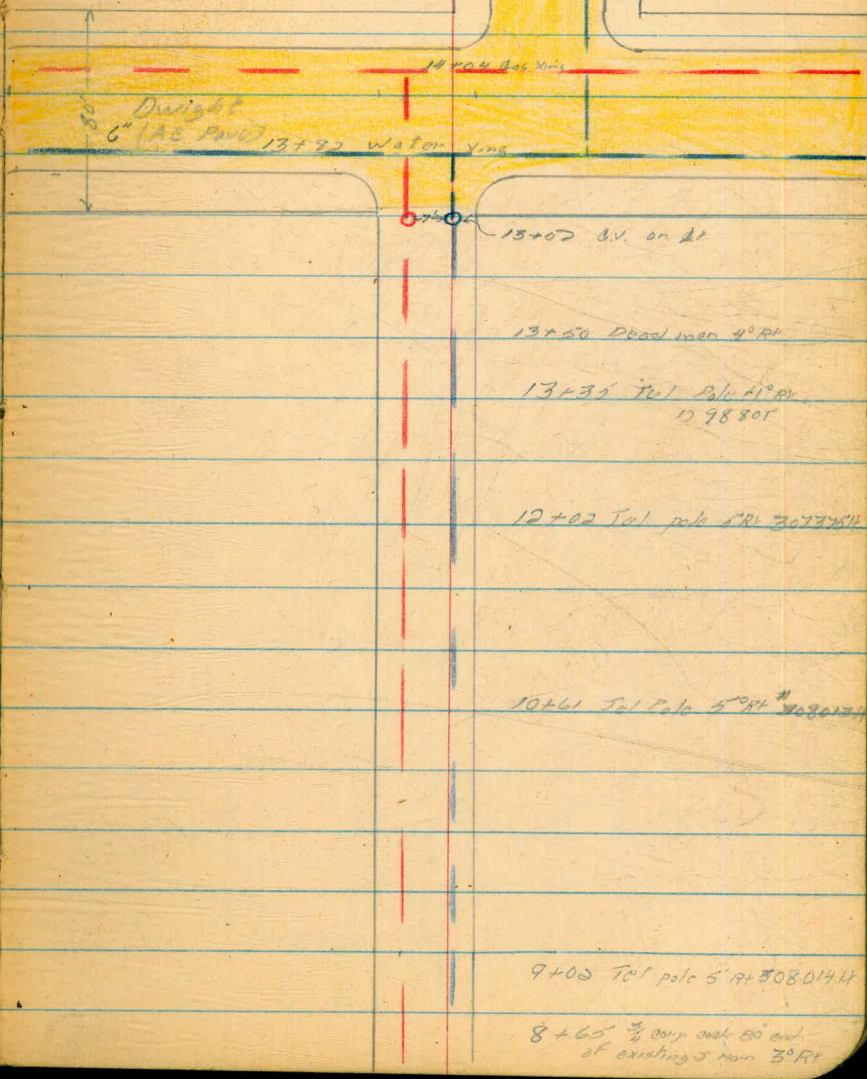 14+04 Gas Xing
80'
Dwight
6" (AC Pav't)
13+82 Water Xing
13+02 G.V. on
13+50 Dead man 4° Rt
13+35 Tel Pole Rt
12+02 Tel pole 5 Rt 307375H
10+61 Tel Pole 5° Rt # 308013H
9+02 Tel pole 5' Rt 308014H
8+65 3/4 end
of existing main 3° Rt